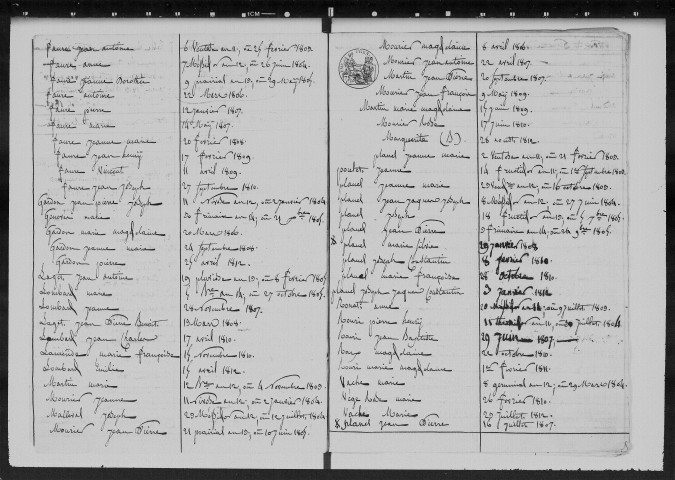 Faure jean antoine 6 Ventose an 11, ou 25 fevrier 1803.
Faure anne 7 Messidor an 12, ou 26 juin 1804.
Faure jeanne Dorothée 9 prairial an 13, ou 29 Mai 1805.
Faure antoine 22 Mars 1806.
Faure pierre 12 janvier 1807.
Faure marie 14 Mai 1807.
Faure jeanne marie 20 fevrier 1808.
Faure jean henry 17 fevrier 1809.
Faure Vincent 11 avril 1809.
Faure jean joseph 27 septembre 1810.
Gardon jean pierre joseph 11 Nivose an 12, ou 2 janvier 1804.
30 frimaire an 14, ou 21 Xbre 1805.
Gardon marie magdelaine 20 Mars 1806.
Gardon jeanne marie 24 septembre 1808.
Gardon pierre 25 avril 1812.
Laget jean antoine 19 pluviose an 13, ou 8 fevrier 1805.
Lombard marie 5 Bre an 14, ou 27 octobre 1805.
Lombard jeanne 28 Novembre 1807.
Laget jean Pierre Benoit 13 Mars 1808.
Lombard jean Charles 17 avril 1810.
marie françoise 14 Novembre 1810.
Lombard Emilie 15 avril 1812.
Martin marie 12 Bre an 12, ou 4 Novembre 1803.
Mourier jeanne 11 Nivose an 12, ou 2 janvier 1804.
joseph 23 Messidor an 12, ou 12 juillet 1804.
Mourier jean Pierre 21 prairial an 13, ou 10 juin 1805.
Mourier magdelaine 8 avril 1806.
Mourier jean antoine 22 avril 1807.
Martin jean Pierre 20 septembre 1807.
Mourier jean françois 9 Mai 1809.
Martin marie magdelaine 15 juin 1809.
Mourier Rose 17 juin 1810.
Marguerite (D) 28 aout 1812.
planel jeanne marie 2 Ventose an 11, ou 21 fevrier 1803.
poulat jeanne 14 fructidor an 11, ou 1er septembre 1803.
planel jeanne marie 23 Vend.re an 12, ou 16 octobre 1803.
planel jean jacques joseph 8 Messidor an 12, ou 27 juin 1804.
planel joseph 18 fructidor an 13, ou 5 7bre 1805.
planel jean Pierre 9 frimaire an 14, ou 30 9bre 1805.
planel marie 29 janvier 1808
planel joseph Constantin 8 fevrier 1810.
planel marie françoise 28 octobre 1810.
planel joseph jacques Constantin 3 janvier 1812
anne 20 Messidor an 11, ou 9 juillet 1803.
pierre henry an 12, ou juillet 1804.
jean Baptiste 29 juin 1807.
magdelaine 22 octobre 1810.
marie magdelaine 12 fevrier 1811.
Vache marie 8 germinal an 12, ou 29 Mars 1804.
Rose marie 26 fevrier 1810.
Vache Marie 20 juillet 1812.
planel jean Pierre 16 juillet 1807.